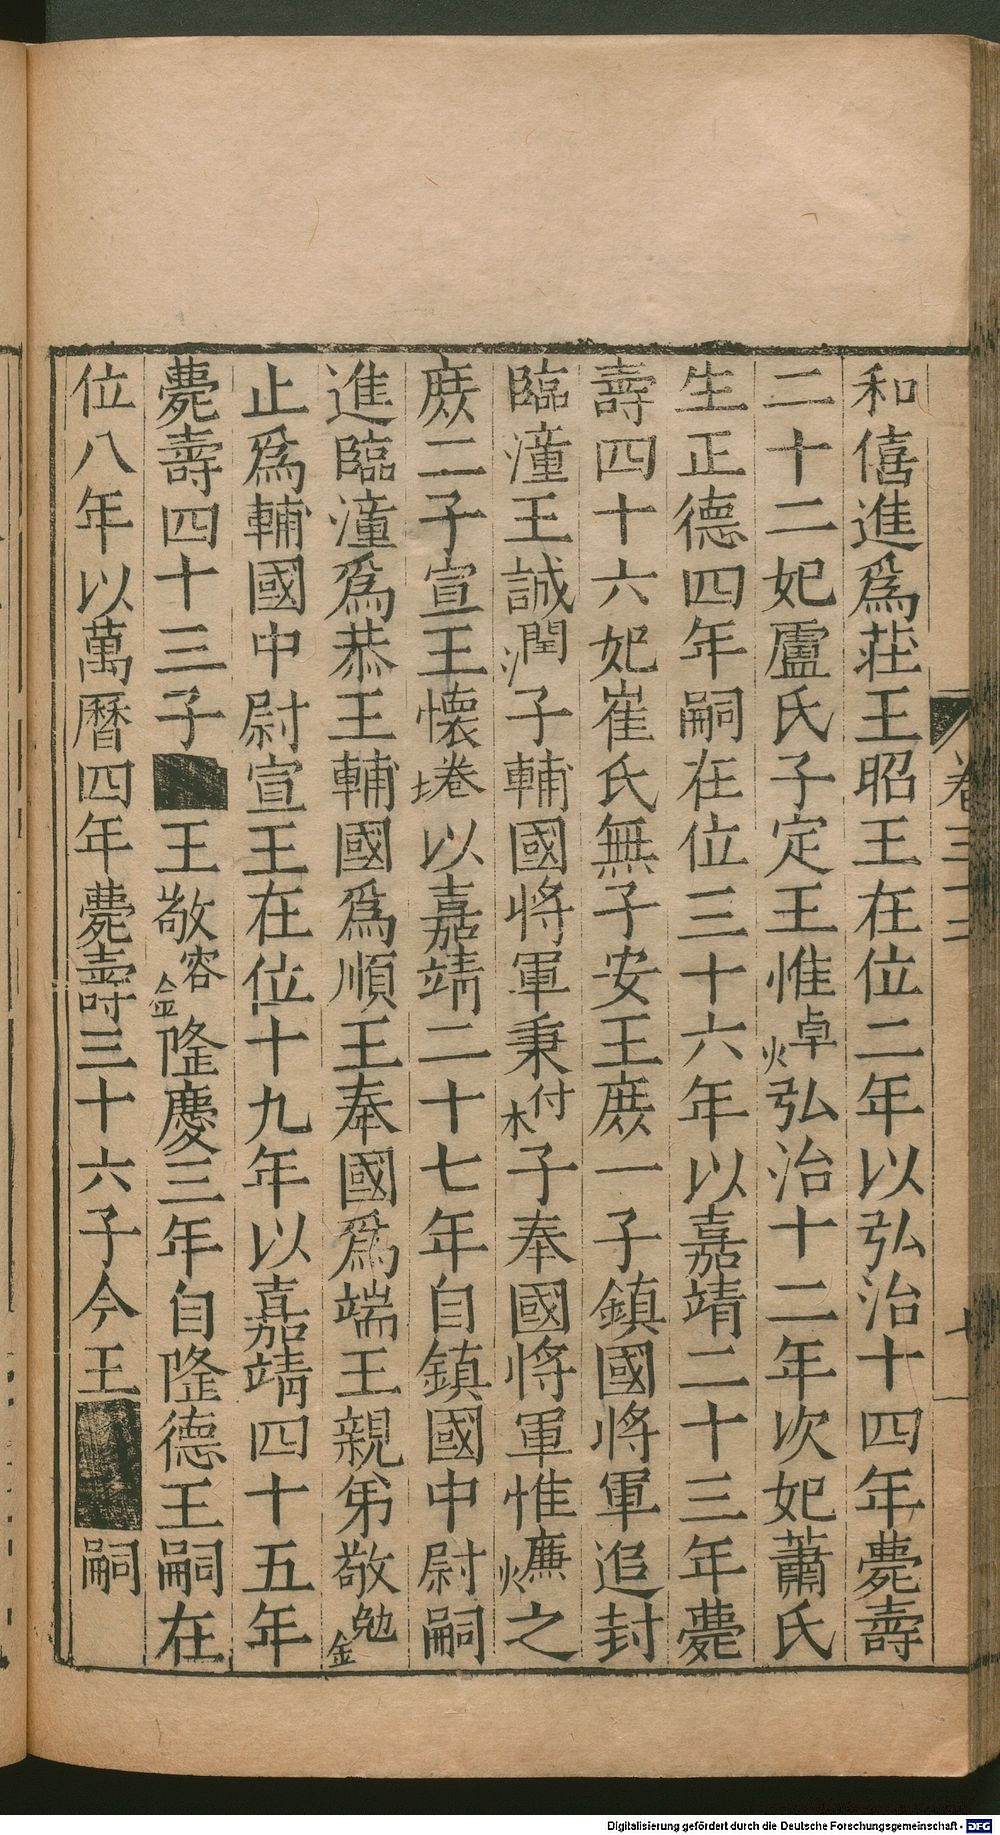 和僖進爲荘王昭王在位二年以弘治十四年薨壽
二十二妃盧氏子定王惟焯弘治十二年次妃蕭氏
生正德四年嗣在位三十六年以嘉靖二十三年薨
壽四十六妃崔氏無子安王庶一子鎮國將軍追封
臨潼王誠潤子輔國將軍秉柎子奉國將軍惟熑之
庶二子宣王懷埢以嘉靖二十七年自鎮國中尉嗣
進臨潼爲恭王輔國爲順王奉國爲端王親弟敬
止爲輔國中尉宣王在位十九年以嘉靖四十五年
薨壽四十三子王敬鎔隆慶三年自隆德王嗣在
位八年以萬曆四年薨壽三十六子今王嗣
卷三二
Digitalisierung gefördert durch die Deutsche Forschungsgemeinschaft - DFG